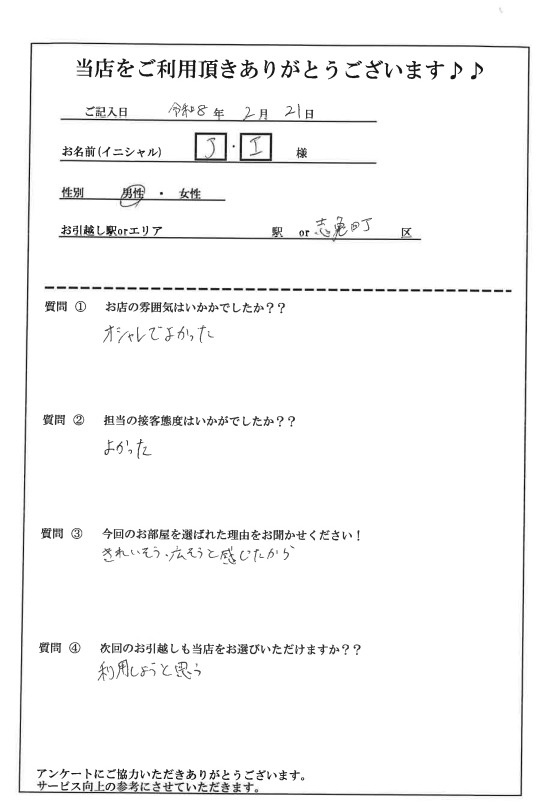 当店をご利用頂きありがとうございます♪♪
ご記入日 令和8年 2月 21日
お名前(イニシャル) J・I 様
性別 男性 ・ 女性
お引越し駅orエリア 駅 or 志免町 区
質問 ① お店の雰囲気はいかかでしたか??
オシャレでよかった
質問 ② 担当の接客態度はいかがでしたか??
よかった
質問 ③ 今回のお部屋を選ばれた理由をお聞かせください!
きれいそう、広そうと感じたから
質問 ④ 次回のお引越しも当店をお選びいただけますか??
利用しようと思う
アンケートにご協力いただきありがとうございます。
サービス向上の参考にさせていただきます。